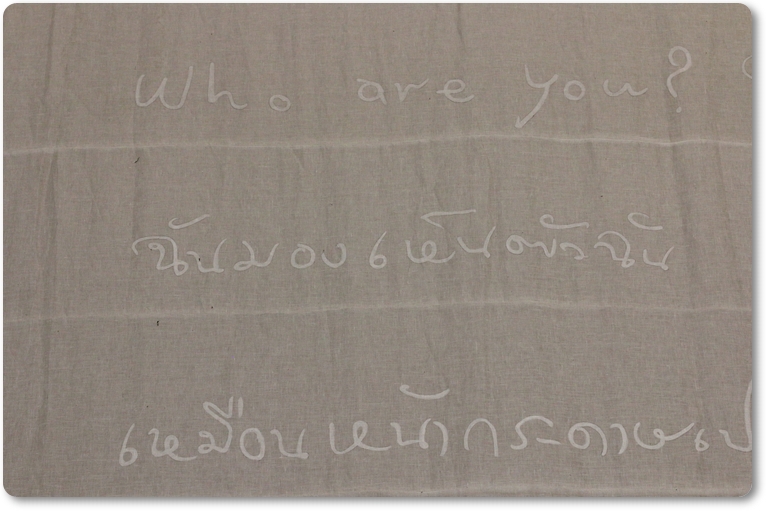 Who are you?
ฉันมองเห็นตัวฉัน
เหมือนหน้ากระดาษเป